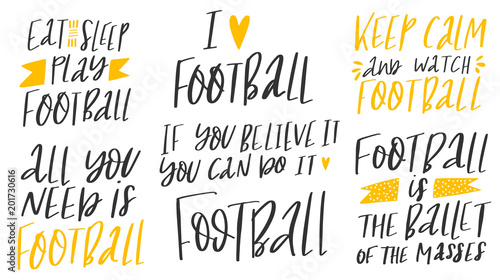 EAT SLEEP
PLAY
FOOTBALL
ALL YOU
NEED IS
FOOTBALL
I
FOOTBALL
IF YOU BELIEVE IT
YOU CAN DO IT
FOOTBALL
KEEP CALM
AND WATCH
FOOTBALL
FOOTBALL
IS
THE BALLET
OF THE MASSES
Adobe Stock | #201730616